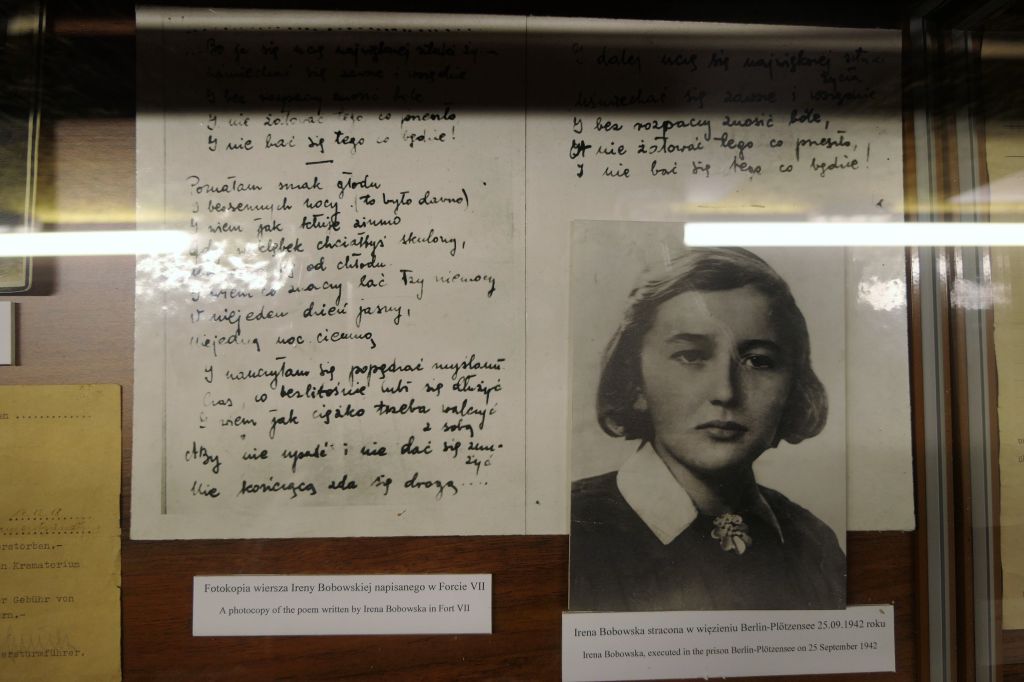 Bo ja się uczę największej sztuki ży-
Uśmiechać się zawsze i wszędzie
I bez rozpaczy znosić bóle
I nie żałować tego co przeszło
I nie bać się tego co będzie!
Poznałam smak głodu
I bezsennych nocy (to było dawno)
I wiem jak kłuje zimno
w kłębek chciałbyś skulony,
od chłodu
I wiem co znaczy lać łzy niemocy
W niejeden dzień jasny,
Niejedną noc ciemną
I nauczyłam się popędzać myślami
Czas, co bezlitośnie lubi się dłużyć
I wiem jak ciężko trzeba walczyć
z sobą
Aby nie upaść i nie dać się znu-
żyć
Nie kończącą zda się drogą....
I dalej uczę się największej sztu
życia
Uśmiechać się zawsze i wszędzie
I bez rozpaczy znosić bóle,
A nie żałować tego co przeszło,
I nie bać się tego co będzie!
Fotokopia wiersza Ireny Bobowskiej napisanego w Forcie VII
A photocopy of the poem written by Irena Bobowska in Fort VII
Irena Bobowska stracona w więzieniu Berlin-Plötzensee 25.09.1942 roku
Irena Bobowska, executed in the prison Berlin-Plötzensee on 25 September 1942
en
rstorben.-
n Krematorium
r Gebühr von
rn.-
ersturmführer.